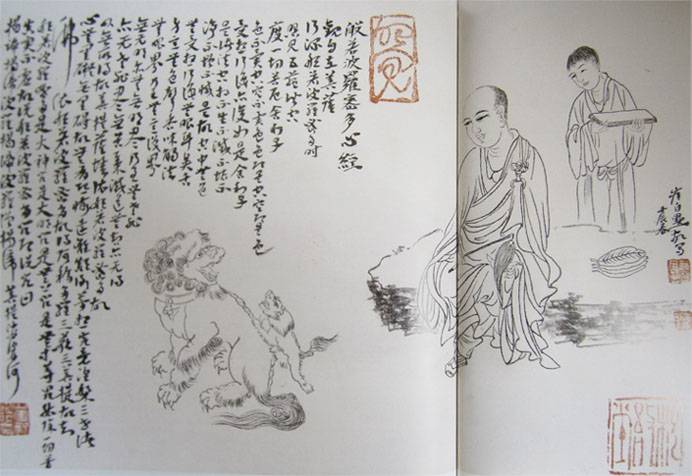 般若波羅蜜多心經
觀自在菩薩
行深般若波羅蜜多時
照見五蘊皆空
度一切苦厄舍利子
色不異空空不異色色即是空空即是色
受想行識亦復如是舍利子
是諸法空相不生不滅不垢不
淨不增不減是故空中無色
無受想行識無眼耳鼻舌
身意無色聲香味觸法
無眼界乃至無意識界
無无明亦無無明盡乃至無老死
亦无老死盡無苦集滅道無智亦無得
以無所得故菩提薩埵依般若波羅蜜多故
心無罣礙無罣礙故無有恐怖遠離顛倒夢想究竟涅槃三世諸
佛依般若波羅蜜多故得阿耨多羅三藐三菩提故知
般若波羅蜜多是大神咒是大明咒是無上咒是無等等咒能除一切苦
真實不虛故說般若波羅蜜多咒即說咒曰
揭諦揭諦波羅揭諦波羅僧揭諦菩提薩婆訶
崔自默敬寫